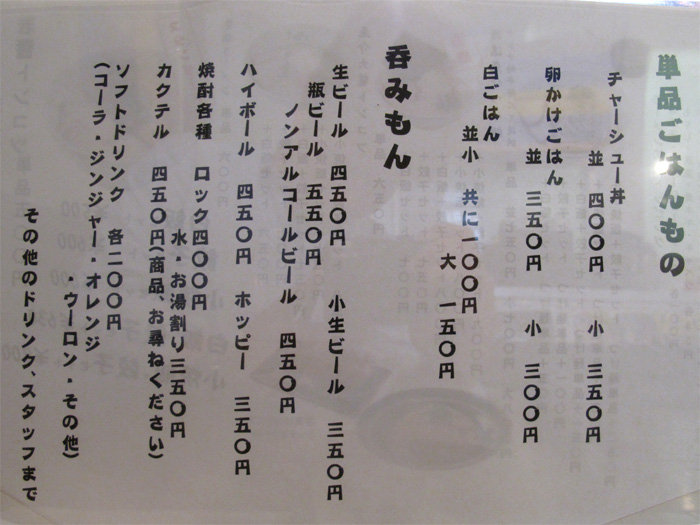 単品ごはんもの
チャーシュー丼
並 四〇〇円 小 三五〇円
卵かけごはん
並 三五〇円 小 三〇〇円
白ごはん
並小 共に一〇〇円
大 一五〇円
呑みもん
生ビール 四五〇円 小生ビール 三五〇円
瓶ビール 五五〇円
ノンアルコールビール 四五〇円
ハイボール 四五〇円 ホッピー 三五〇円
焼酎各種 ロック四〇〇円
水・お湯割り三五〇円
カクテル 四五〇円(商品、お尋ねください)
ソフトドリンク 各二〇〇円
(コーラ・ジンジャー・オレンジ
・ウーロン・その他)
その他のドリンク、スタッフまで